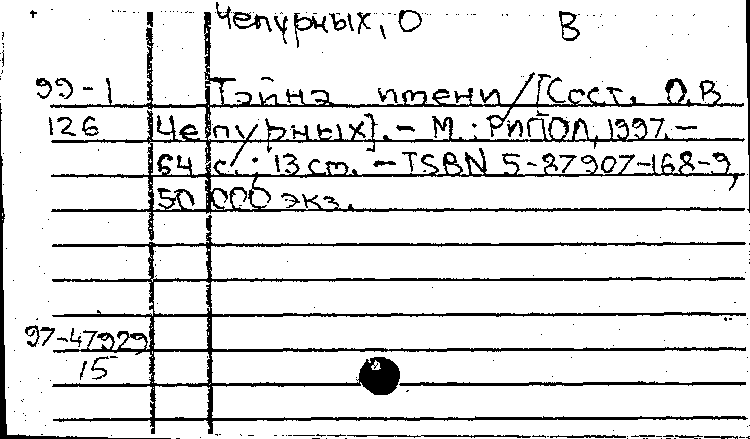 Чепурных, О В
99-1 Тайна имени / [Сост. О. В
126 Чепурных]. - М.: РИПОЛ, 1997. -
64 с.; 13 см. - ISBN 5-87907-168-9,
50 000 экз.
97-47929
15